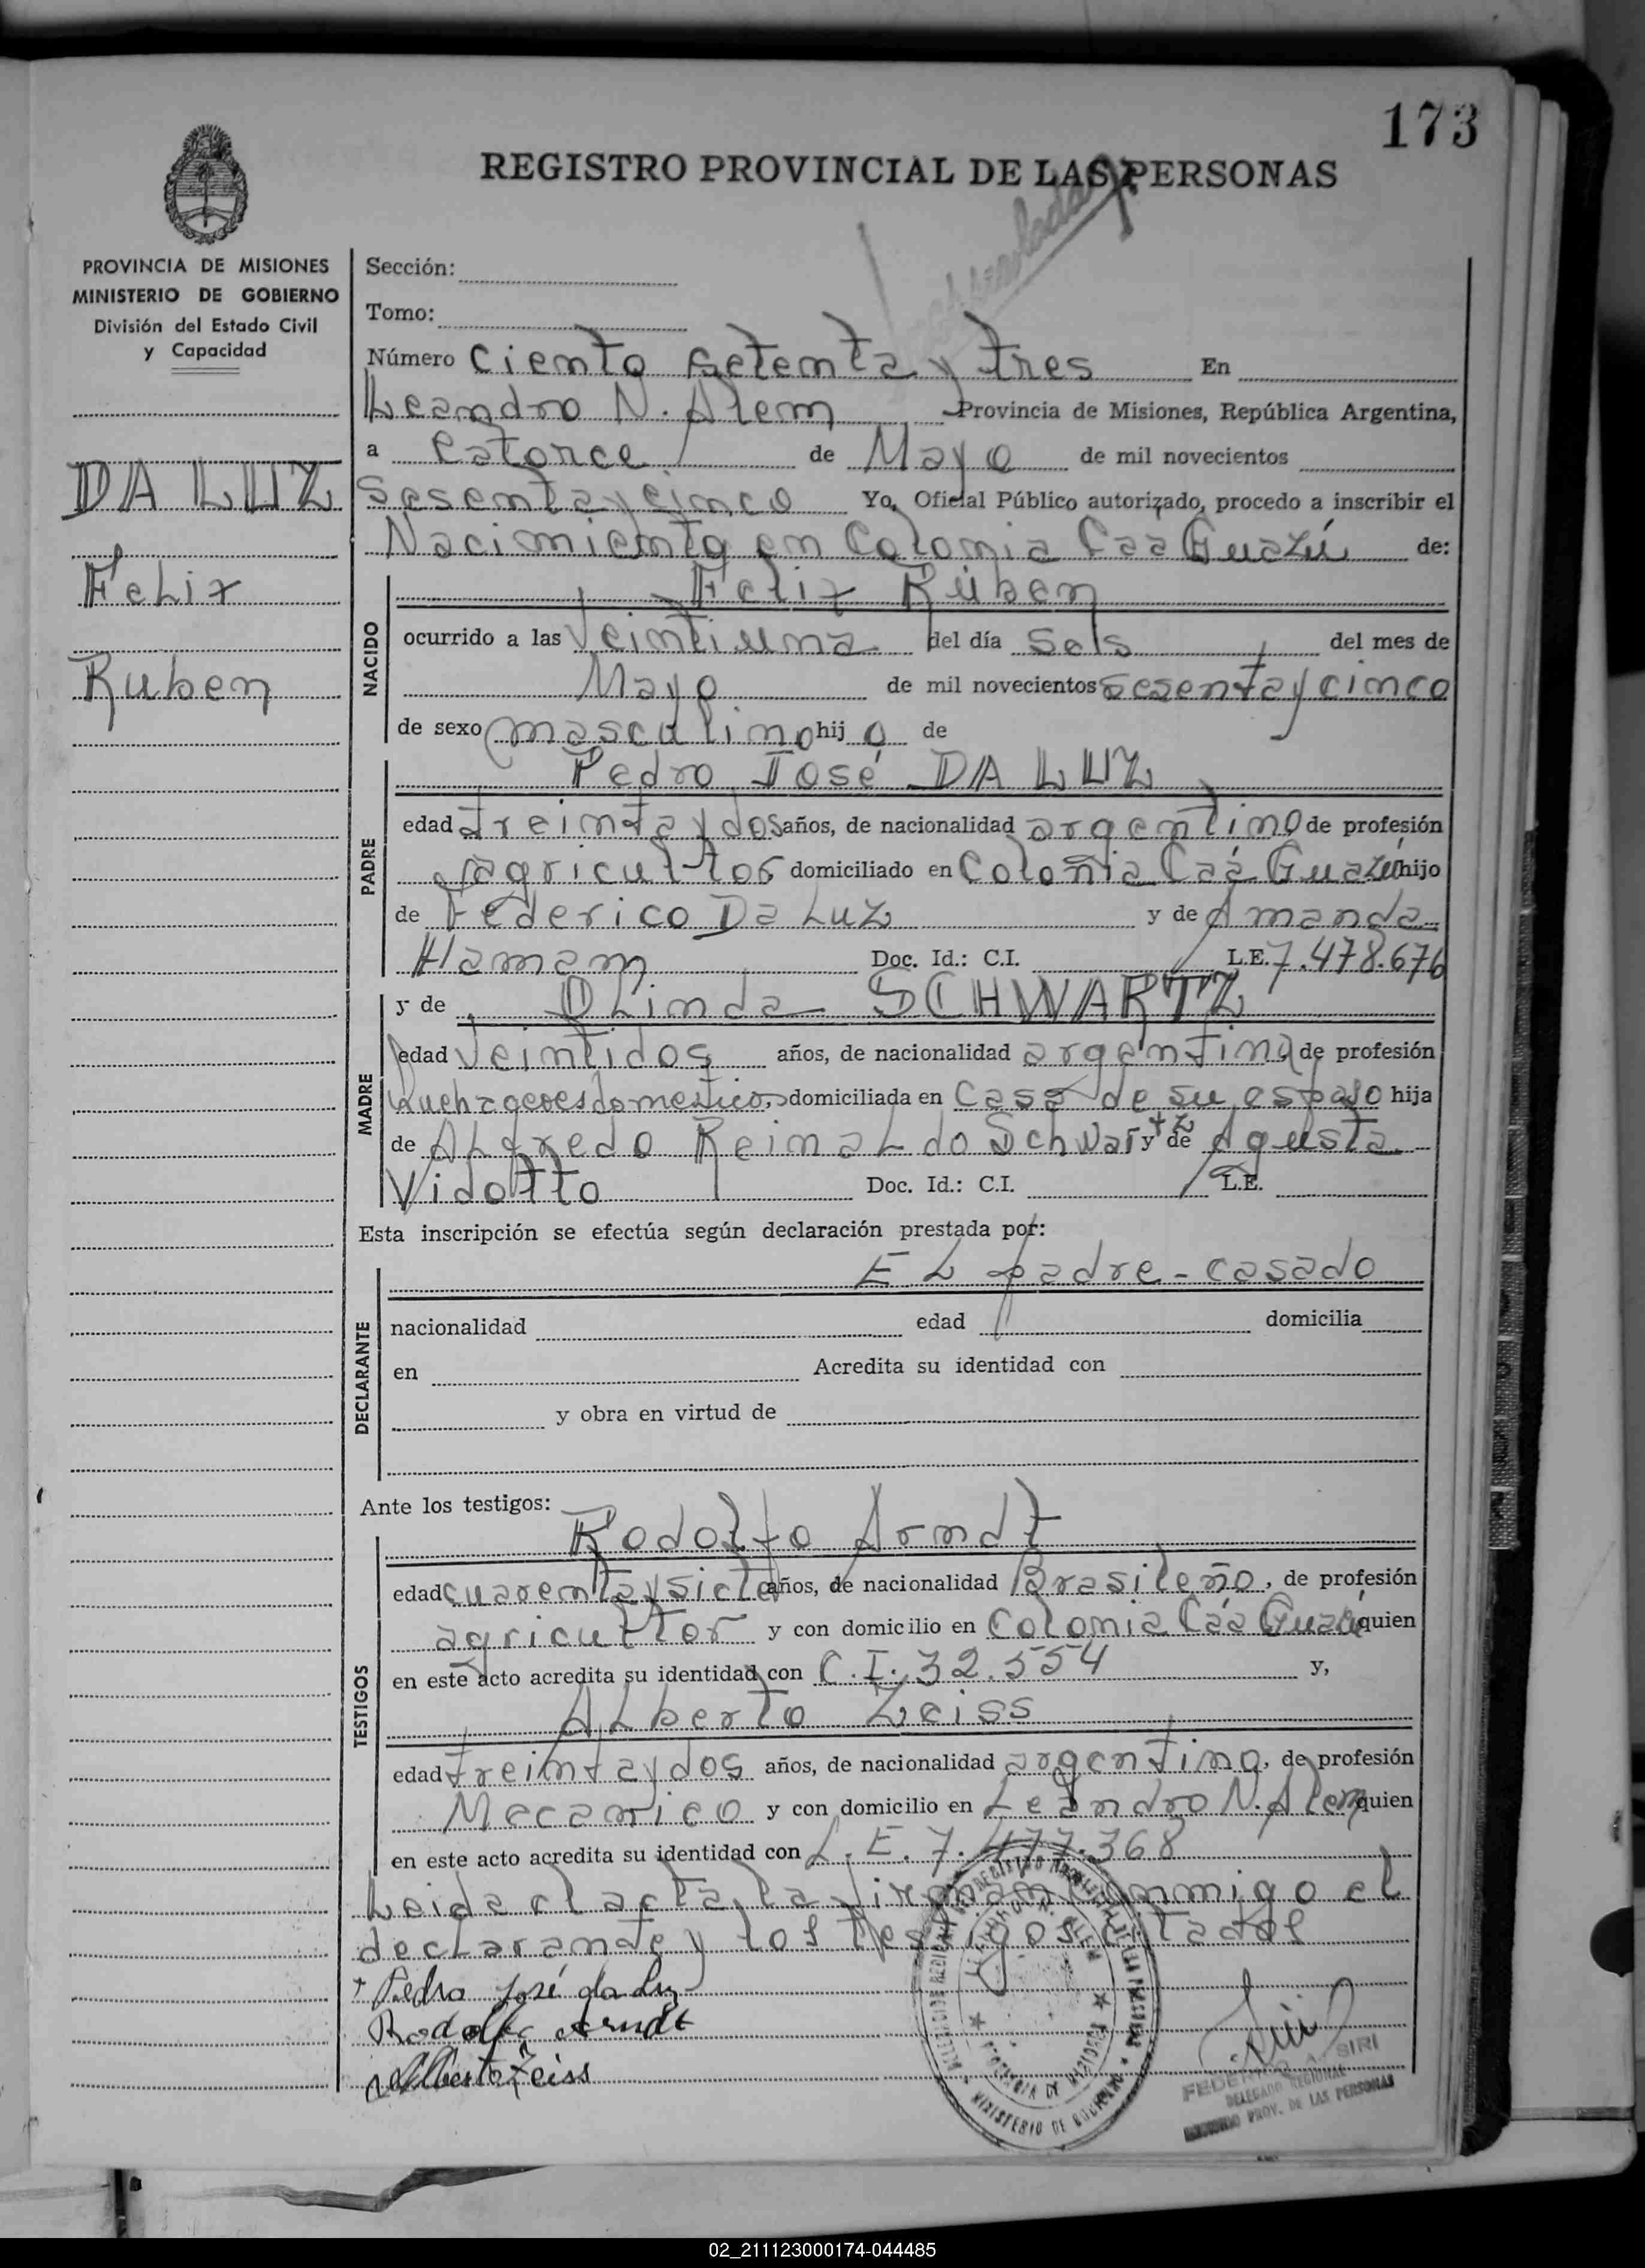 173
REGISTRO PROVINCIAL DE LAS PERSONAS
PROVINCIA DE MISIONES
MINISTERIO DE GOBIERNO
División del Estado Civil
y Capacidad
DA LUZ
Felix
Ruben
Sección:
Tomo:
Número Ciento setenta y tres En
Leandro N. Alem Provincia de Misiones, República Argentina,
a Catorce de Mayo de mil novecientos
sesenta y cinco Yo, Oficial Público autorizado, procedo a inscribir el
Nacimiento en Colonia Caa Guazú de:
NACIDO
Felix Rúben
ocurrido a las Veintiuna del día seis del mes de
Mayo de mil novecientos sesenta y cinco
de sexo masculino hij o de
PADRE
Pedro José DA LUZ
edad treinta y dos años, de nacionalidad argentino de profesión
agricultor domiciliado en Colonia Caá Guazú hijo
de Federico Da Luz y de Amanda
Hamam Doc. Id.: C.I. L.E. 7.478.676
MADRE
y de Olinda SCHWARTZ
edad veintidos años, de nacionalidad argentina de profesión
domiciliada en Casa de su esposo hija
de Alfredo Reinaldo Schwartz y de Agusta
Vidotto Doc. Id.: C.I. L.E.
Esta inscripción se efectúa según declaración prestada por:
DECLARANTE
El padre - casado
nacionalidad edad domicilia
en Acredita su identidad con
y obra en virtud de
Ante los testigos:
TESTIGOS
Rodolfo Arndt
edad cuarenta y siete años, de nacionalidad Brasileño, de profesión
agricultor y con domicilio en Colonia Cáa Guazú quien
en este acto acredita su identidad con C.I. 32.554 y,
Alberto Zeiss
edad treinta y dos años, de nacionalidad argentino, de profesión
Mecanico y con domicilio en Leandro N. Alem quien
en este acto acredita su identidad con L.E. 7.477.368
Leida el acta, la firman conmigo el
declarante y los testigos citados
Pedro José da Luz
Rodolfo Arndt
Alberto Zeiss
MINISTERIO DE GOBIERNO
PROVINCIA DE MISIONES
FEDERICO A. SIRI
DELEGADO REGIONAL
REGISTRO PROV. DE LAS PERSONAS
02_211123000174-044485